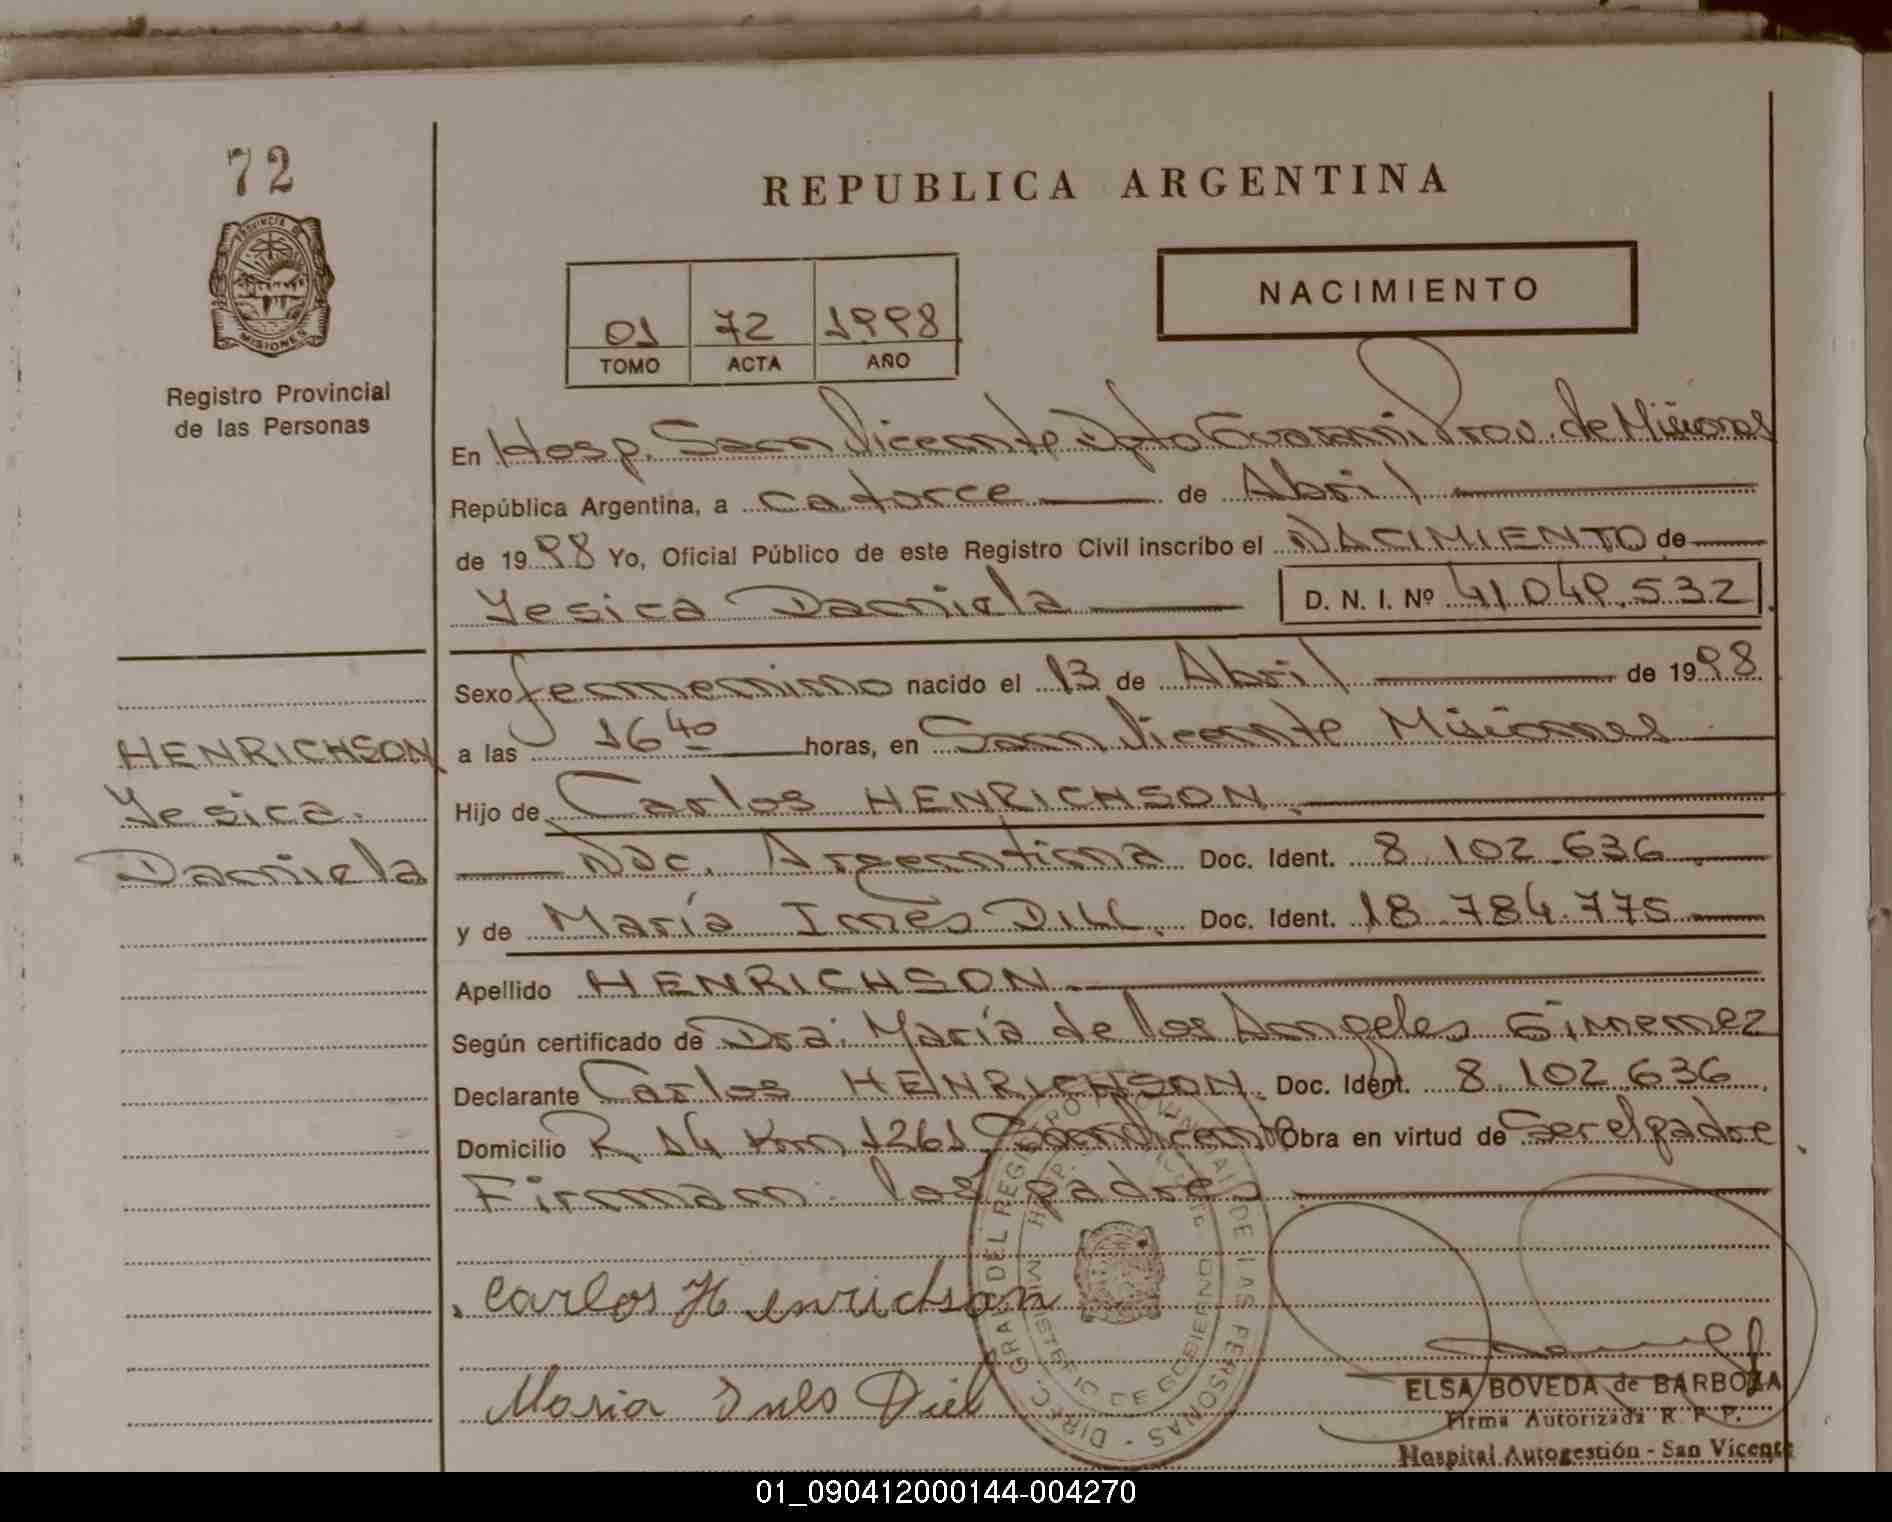 72
REPUBLICA ARGENTINA
PROVINCIA DE
MISIONES
Registro Provincial
de las Personas
01 72 1998
TOMO ACTA AÑO
NACIMIENTO
En Hosp. San Vicente Dpto Guaraní Prov. de Misiones
República Argentina, a catorce de Abril
de 1998 Yo, Oficial Público de este Registro Civil inscribo el NACIMIENTO de
Yesica Daniela D. N. I. Nº 41.049.532
Sexo femenino nacido el 13 de Abril de 1998
a las 16 40 horas, en San Vicente Misiones
Hijo de Carlos HENRICHSON
Nac. Argentina Doc. Ident. 8.102.636
y de María Inés DILL. Doc. Ident. 18.784.775
Apellido HENRICHSON
Según certificado de Dra. María de los Angeles Gimenez
Declarante Carlos HENRICHSON. Doc. Ident. 8.102.636
Domicilio R 14 Km 1261 San Vicente Obra en virtud de Ser el padre
Firman los padres
HENRICHSON
Yesica
Daniela
Carlos Henrichson
Maria Ines Diel
DIREC. GRAL DEL REGISTRO PROVINCIAL DE LAS PERSONAS
MINISTERIO DE GOBIERNO
ELSA BOVEDA de BARBOZA
Firma Autorizada R. P. P.
Hospital Autogestión - San Vicente
01_090412000144-004270